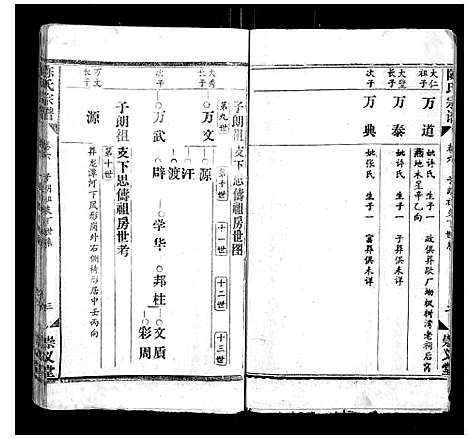 陈氏宗谱
大仁祖子
万道
妣许氏 生子一 政 俱葬
燕地木星辛乙向
枫树湾老祠后窝
大壁次子
万泰
妣许氏 生子一 于 葬俱未详
次子
万典
妣张氏 生子一 富 葬俱未详
子朗祖支下思俦祖房世图
第九世
第十世
十一世
十二世
十三世
大秀长子
万文
源
汗
渡
次子
万武
辟
学华
邦柱
文质
彩周
子朗祖支下思俦祖房世考
第十世
万文长子
源
葬龙潭河下凤形岗外右侧
形居中壬丙向
陈氏宗谱
卷六
三
崇义堂